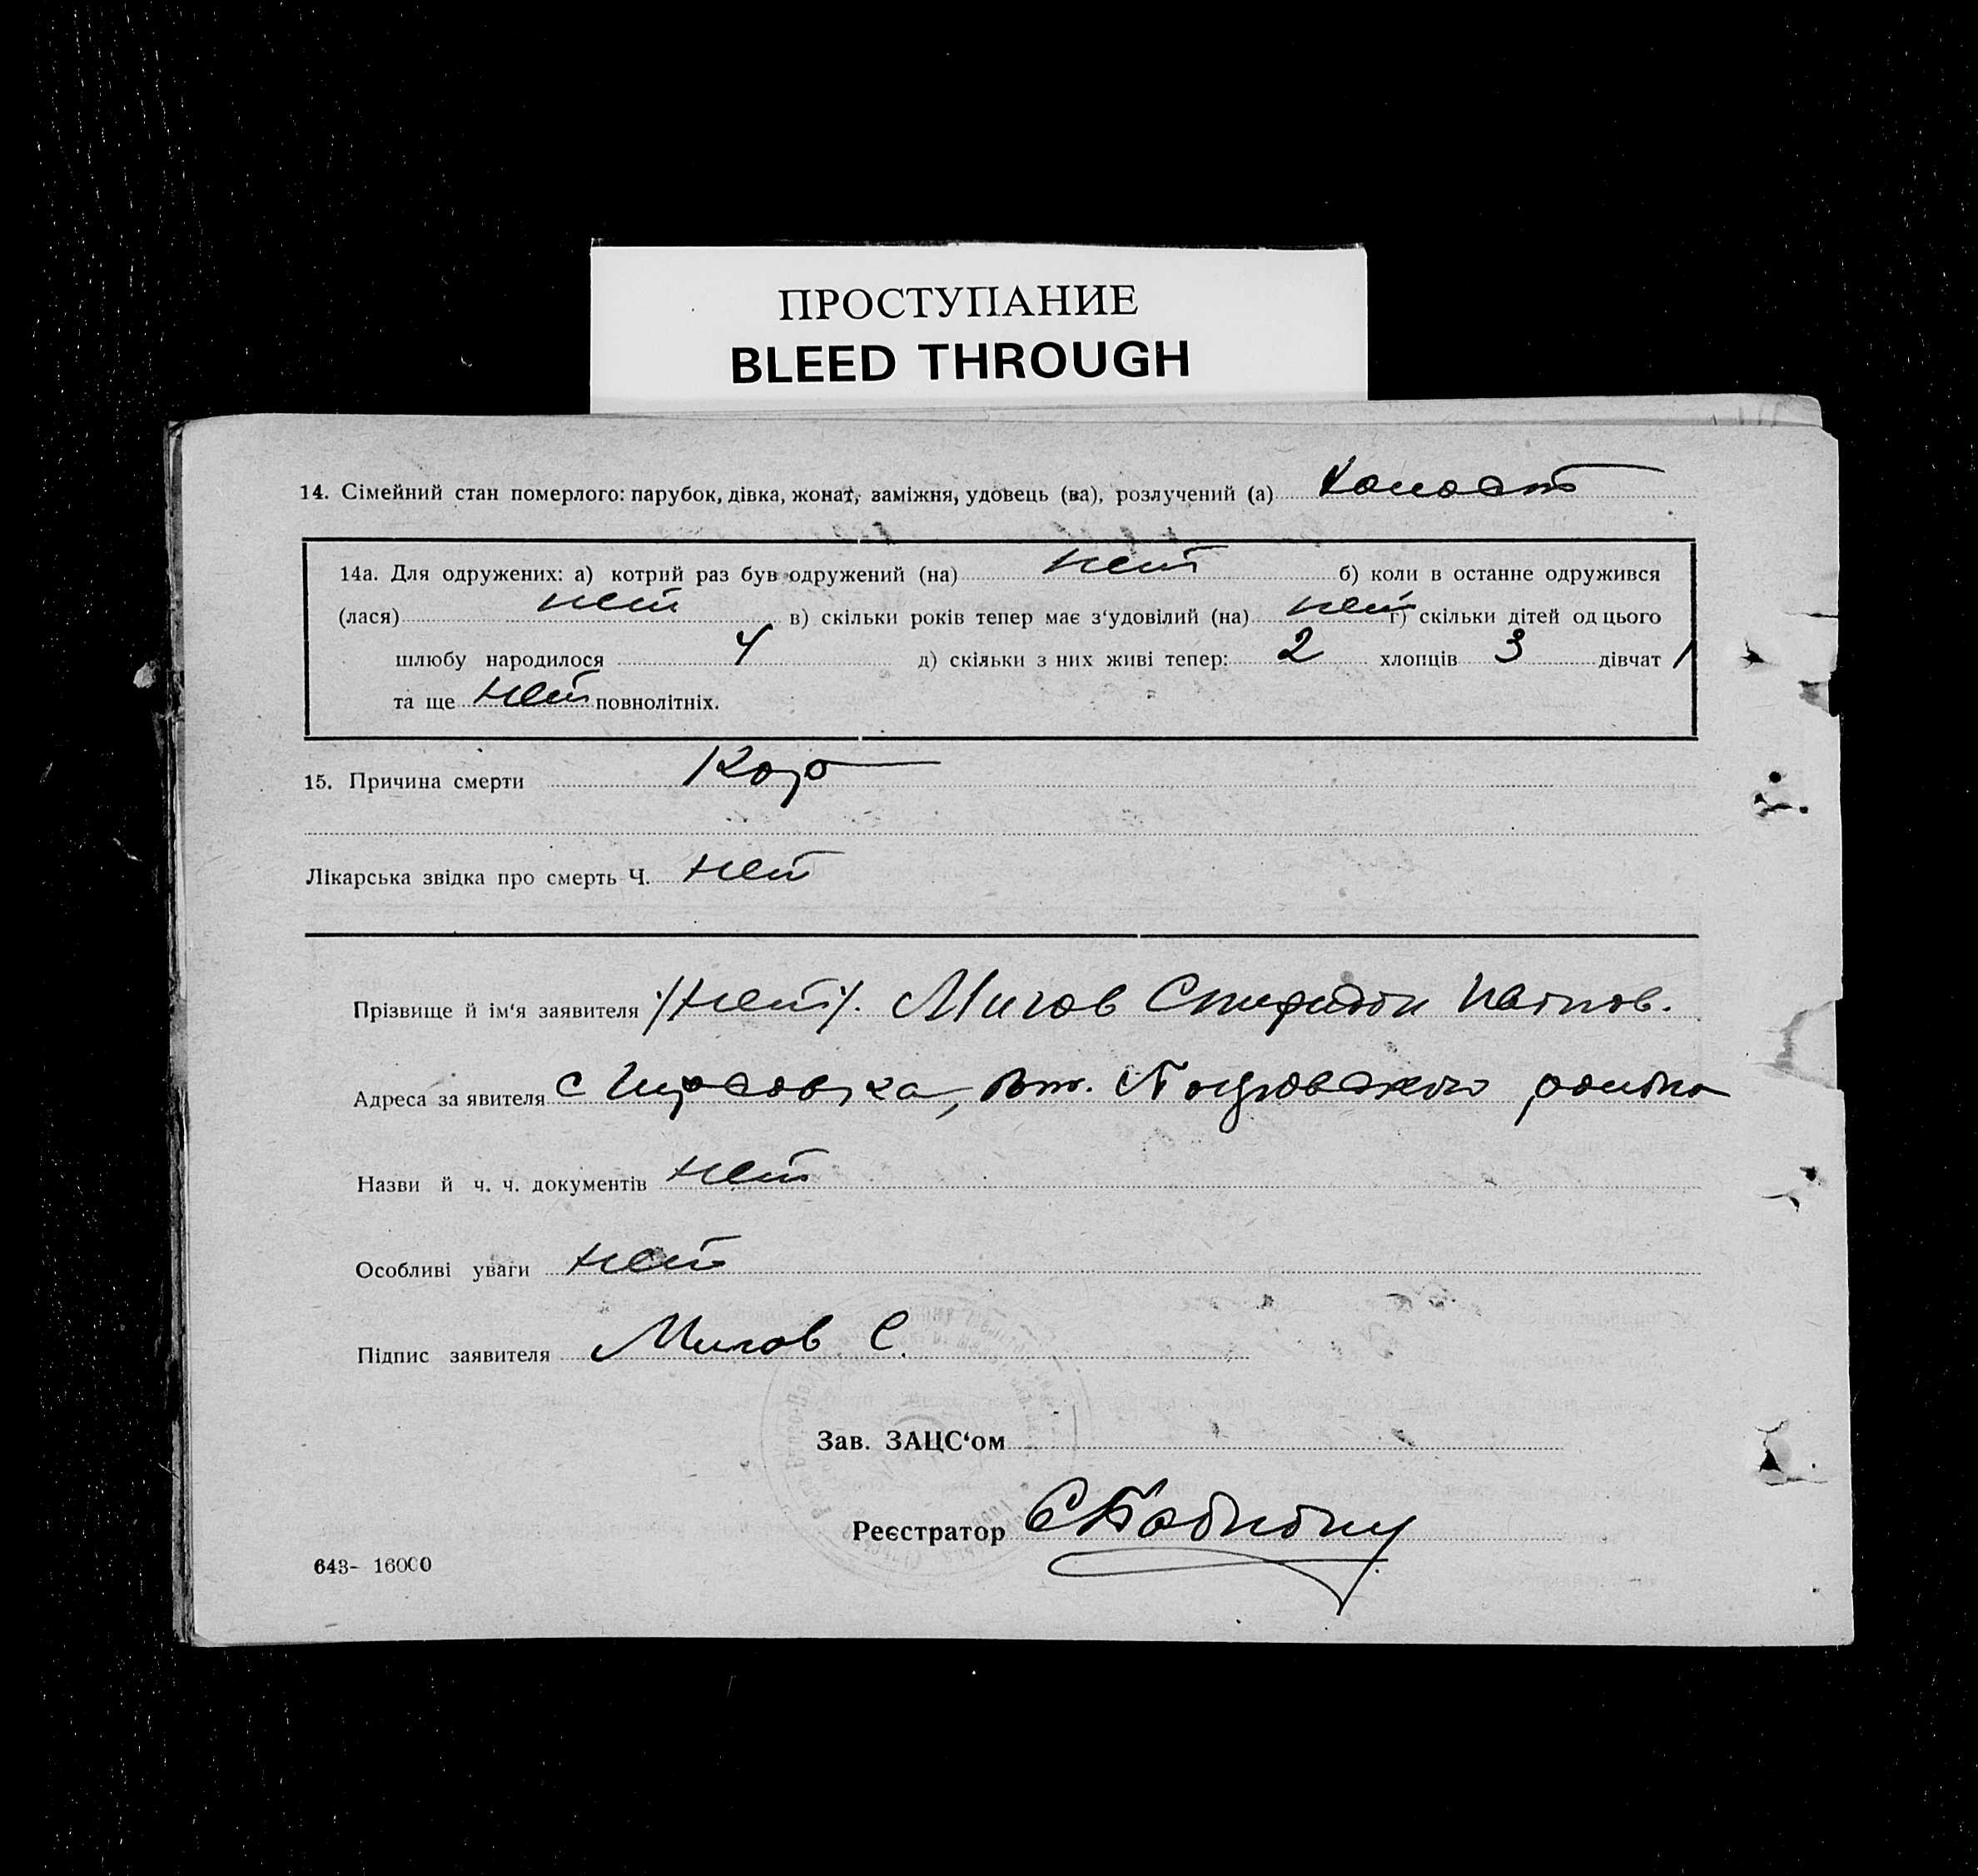 ПРОСТУПАНИЕ
BLEED THROUGH
14. Сімейний стан померлого: парубок, дівка, жонат, заміжня, удовець (ва), розлучений (а) холост
14а. Для одружених: а) котрий раз був одружений (на) нет б) коли в останнє одружився
(лася) нет в) скільки років тепер має з‘удовілий (на) нет г) скільки дітей од цього
шлюбу народилося 4 д) скільки з них живі тепер: 2 хлопців 3 дівчат 1
та ще нет повнолітніх.
15. Причина смерти Кор
Лікарська звідка про смерть Ч. нет
Прізвище й ім‘я заявителя /нет/. Мигов Спиридон
Адреса заявителя с района
Назви й ч. ч. документів нет
Особливі уваги нет
Підпис заявителя Мигов С.
Зав. ЗАЦС‘ом
Реєстратор
643- 16000